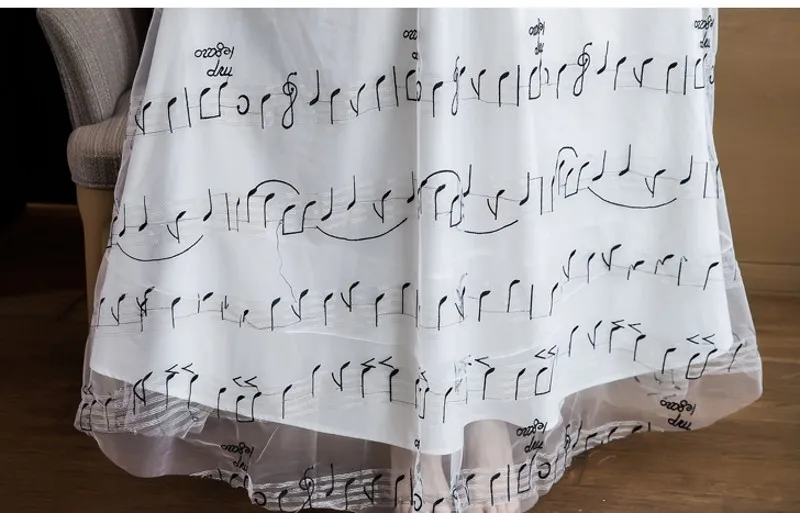 mp
legato
mp
legato
mp
legato
mp
legato
mp
legato